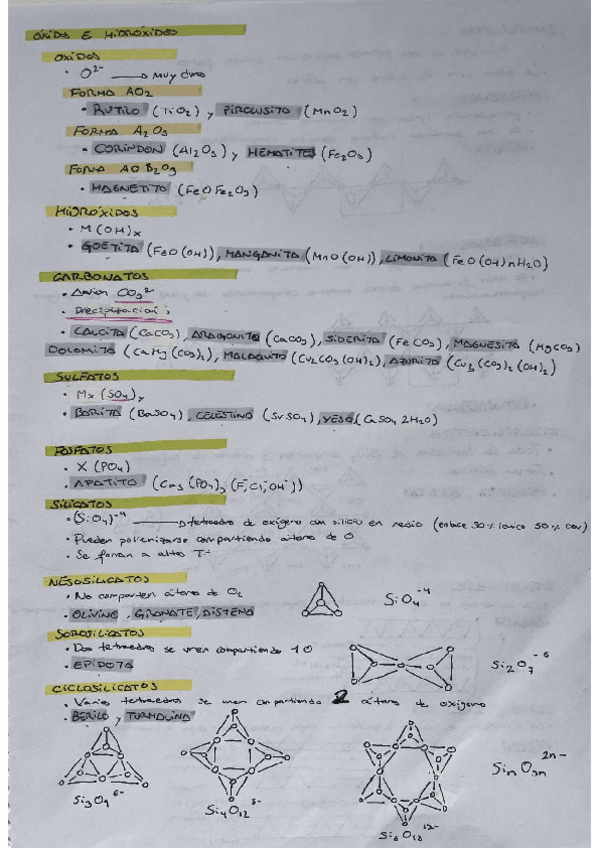 ÓXIDOS E HIDRÓXIDOS
OXIDOS
• O²⁻ → Muy duros
FORMA AO₂
• RUTILO (TiO₂) y PIROLUSITA (MnO₂)
FORMA A₂O₃
• CORINDON (Al₂O₃) y HEMATITES (Fe₂O₃)
FORMA AO B₂O₃
• MAGNETITA (FeO Fe₂O₃)
HIDRÓXIDOS
• M(OH)ₓ
• GOETITA (FeO(OH)), MANGANITA (MnO(OH)), LIMONITA (FeO(OH)nH₂O)
CARBONATOS
• Anion CO₃²⁻
• Precipitacion
• CALCITA (CaCO₃), ARAGONITO (CaCO₃), SIDERITA (FeCO₃), MAGNESITA (MgCO₃)
DOLOMITA (CaMg(CO₃)₂), MALAQUITA (Cu₂CO₃(OH)₂), AZURITA (Cu₃(CO₃)₂(OH)₂)
SULFATOS
• Mx(SO₄)y
• BARITA (BaSO₄), CELESTINO (SrSO₄), YESO (CaSO₄ 2H₂O)
FOSFATOS
• X(PO₄)
• APATITO (Ca₅(PO₄)₃(F⁻,Cl⁻,OH⁻))
SILICATOS
• (SiO₄)⁻⁴ → tetraedro de oxígeno con silicio en medio (enlace 50% ionico 50% cov)
• Pueden polimerizarse compartiendo átomos de O
• Se forman a altas T
NESOSILICATOS
• No comparten átomos de O₂
• OLIVINO, GRANATE, DISTENA
SiO₄⁻⁴
SOROSILICATOS
• Dos tetraedros se unen compartiendo 1 O
• EPIDOTA
Si₂O₇⁻⁶
CICLOSILICATOS
• Varios tetraedros se unen compartiendo 2 átomos de oxigeno
• BERILO y TURMALINA
Si₃O₉⁶⁻
Si₄O₁₂⁸⁻
Si₆O₁₈¹²⁻
SinO₃n²ⁿ⁻